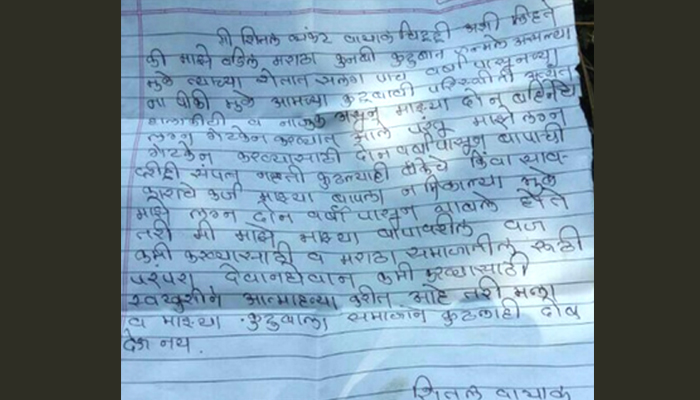 मी शितल व्यंकट वायाळ चिठ्ठी अशी लिहते
की माझे वडिल मराठा कुनबी कुटुंबात जन्मले असल्या
मुळे त्याच्या शेतात सलग पाच वर्षा पासूनच्या
ना पीकी मुळे आमच्या कुटुंबाची परिस्थीती अत्यंत
हालाकीची व नाजुक असून माझ्या दोन बहिनीचे
लग्न गेटकेन करण्यात आले परंतू माझे लग्न
गेटकेन करण्यासाठी दोन वर्षापासून बापाची
दलीद्री संपत नव्हती कुठल्याही बँकेचे किंवा साव-
काराचे कर्ज माझ्या बापला न मिळाल्या मुळे
माझे लग्न दोन वर्षा पासून थांबले होते
तरी मी माझे माझ्या बापावरील वज
कमी करण्यासाठी व मराठा समाजातील रूठी
परंपरा देवानघेवान कमी करण्यासाठी
स्वखुशीने आत्माहत्या करीत आहे तरी मला
व माझ्या कुटुंबाला समाजान कुठलाही दोष
देऊ नये.
शितल वायाळ